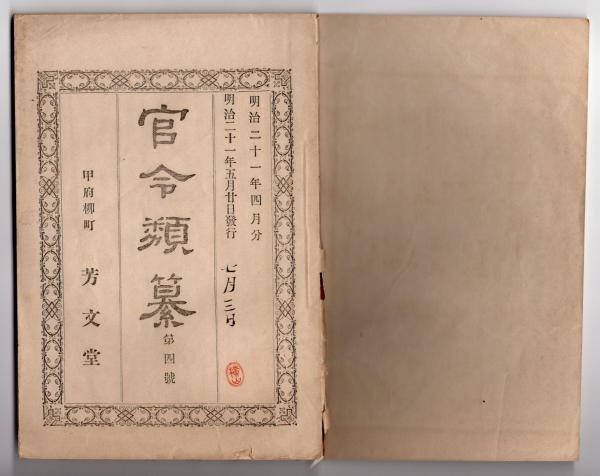 明治二十一年四月分
明治二十一年五月廿日發行
七月三日
官令類纂
第四號
甲府柳町
芳文堂